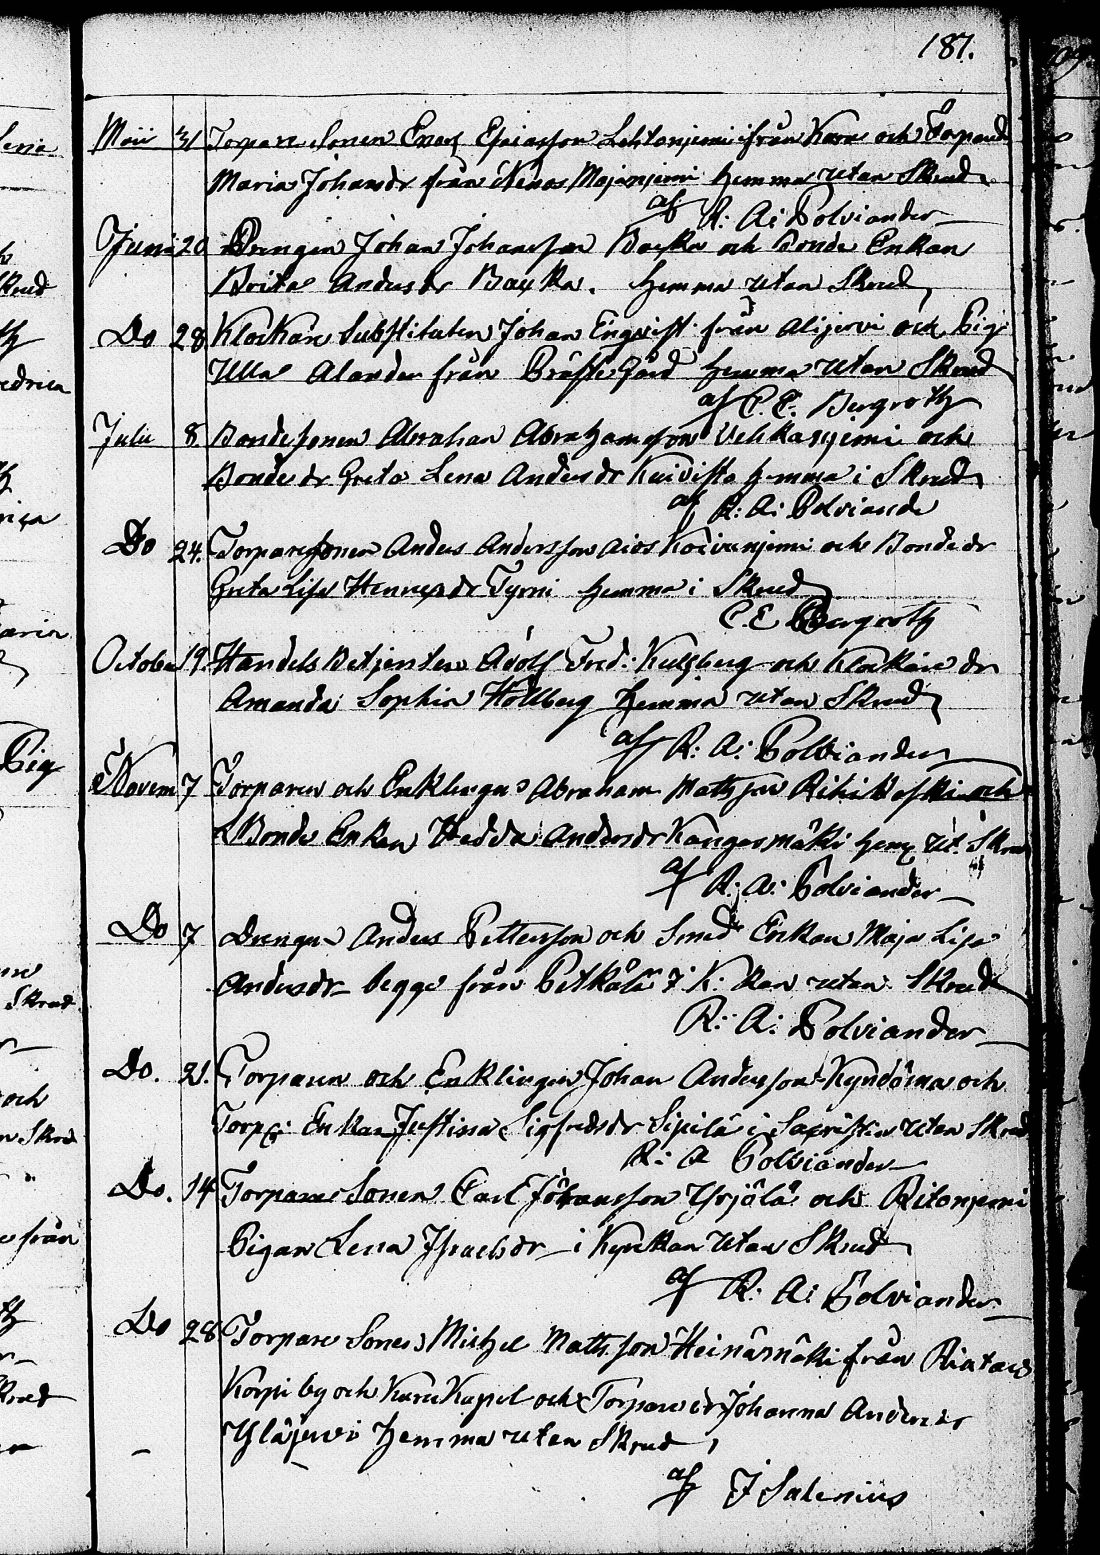 187.
Maii 31 Torpare Sonen Enock Esaiasson Lehtoniemi ifrån Karv och Torpared
Maria Johansdr från Nenos Majaniemi hemma utan Skrud
af R: A: Polviander
Juni 20 Drengen Johan Johansson Backa och Bonde Enkan
Brita Andersdr Backa. hemma utan Skrud
Do 28 Klockare Substituten Johan Engvist från Alijervi och Pig:
Ulla Alander från Prästegård hemma utan Skrud
af C. E. Bergroth
Julii 8 Bondesonen Abraham Abrahamsson Vehkaniemi och
Bonde dr Greta Lena Andersdr Kuivisto hemma i Skrud
af R: A: Polviande
Do 24. Torparesonen Anders Andersson Aios Koivuniemi och Bonde dr
Greta Lisa Henricsdr Tyrni hemma i Skrud
C. E Bergroth
October 19. Handels Betjenten Adolf Fred: Kulsberg och Klockare dr
Amanda Sophia Hollberg hemma utan Skrud
af R. A: Polviander
Novem 7 Torparen och Enklingen Abraham Mattsson Rihikoski och
Bonde Enkan Hedda Andersdr Kangasmäki hem: ut. Skrud
af R: A: Polviander
Do 7 Drengen Anders Pettersson och Smed Enkan Maja Lisa
Andersdr begge från Petkälä i K: kan utan Skrud
R: A: Polviander
Do. 21. Torparen och Enklingen Johan Andersson Kyndöina och
Torp: Enkan Justina Sigfredsdr Sipilä i Sacristin utan Skrud
R: A Polviander
Do. 14 Torpare Sonen Carl Johansson Yrjölä och Ritoniemi
Pigan Lena Israelsdr i Kyrckan utan Skrud
af R: A: Polviander
Do 28 Torpare Sonen Michel Mattsson Heinämäki från
Korpi by och Karv Kapel och Torpare dr Johanna Andersdr
Yläjervi hemma utan Skrud
af J Salenius